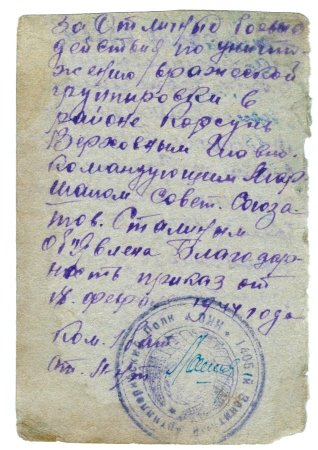 за отличные боевые
действия по уничто
жению вражеской
группировки в
районе Корсунь
Верховным Главно.
командующим Мар
шалом Совет. Союза
тов. Сталиным
объявлена Благодар
ность приказ от
18. февр. 1944 года
Ком.
Ст.